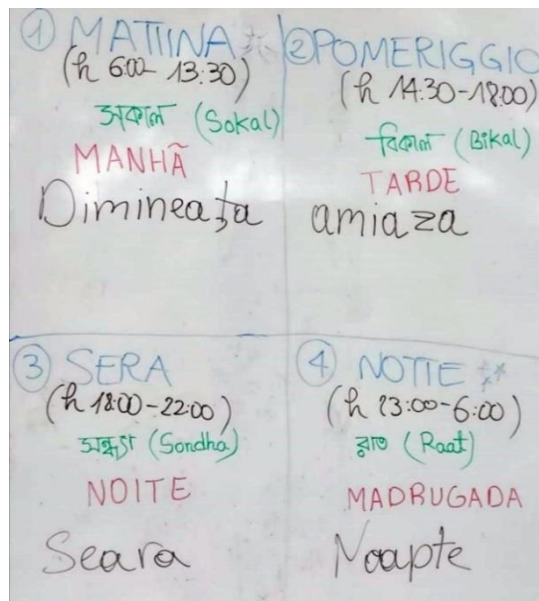 ① MATTINA
(h 6:00 - 13:30)
সকাল (Sokal)
MANHÃ
Dimineața
② POMERIGGIO
(h 14:30-18:00)
বিকাল (Bikal)
TARDE
amiaza
③ SERA
(h 18:00-22:00)
সন্ধ্যা (Sondha)
NOITE
Seara
④ NOTTE
(h 23:00-6:00)
রাত (Raat)
MADRUGADA
Noapte